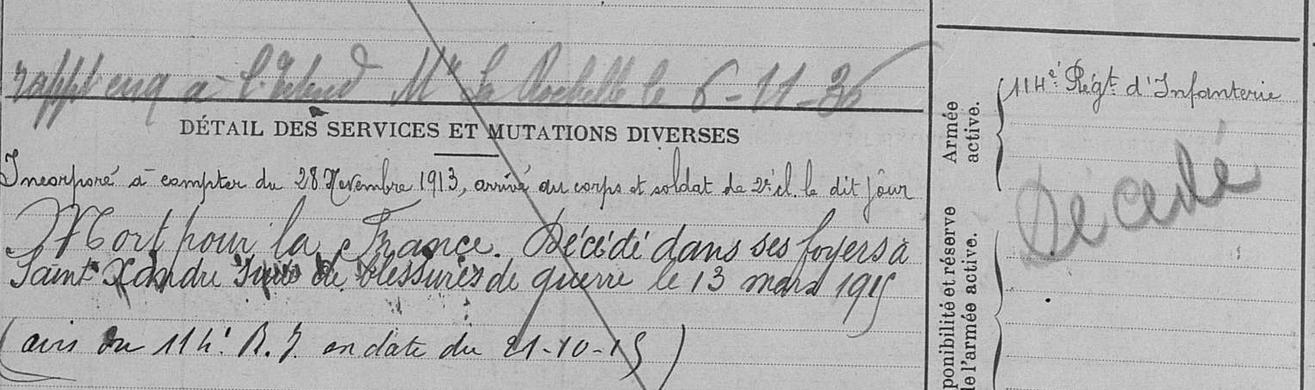 rappt enq à l'Intend Mre La Rochelle le 6-11-36
DÉTAIL DES SERVICES ET MUTATIONS DIVERSES
Incorporé à compter du 28 Novembre 1913, arrivé au corps et soldat de 2e cl. le dit jour
Mort pour la France. Décédé dans ses foyers à
Saint Xandre de blessures de guerre le 13 mars 1915
(avis du 114e R. I. en date du 21-10-15)
Armée active.
114e Régt d'Infanterie
Décédé
ponibilité et réserve
de l'armée active.